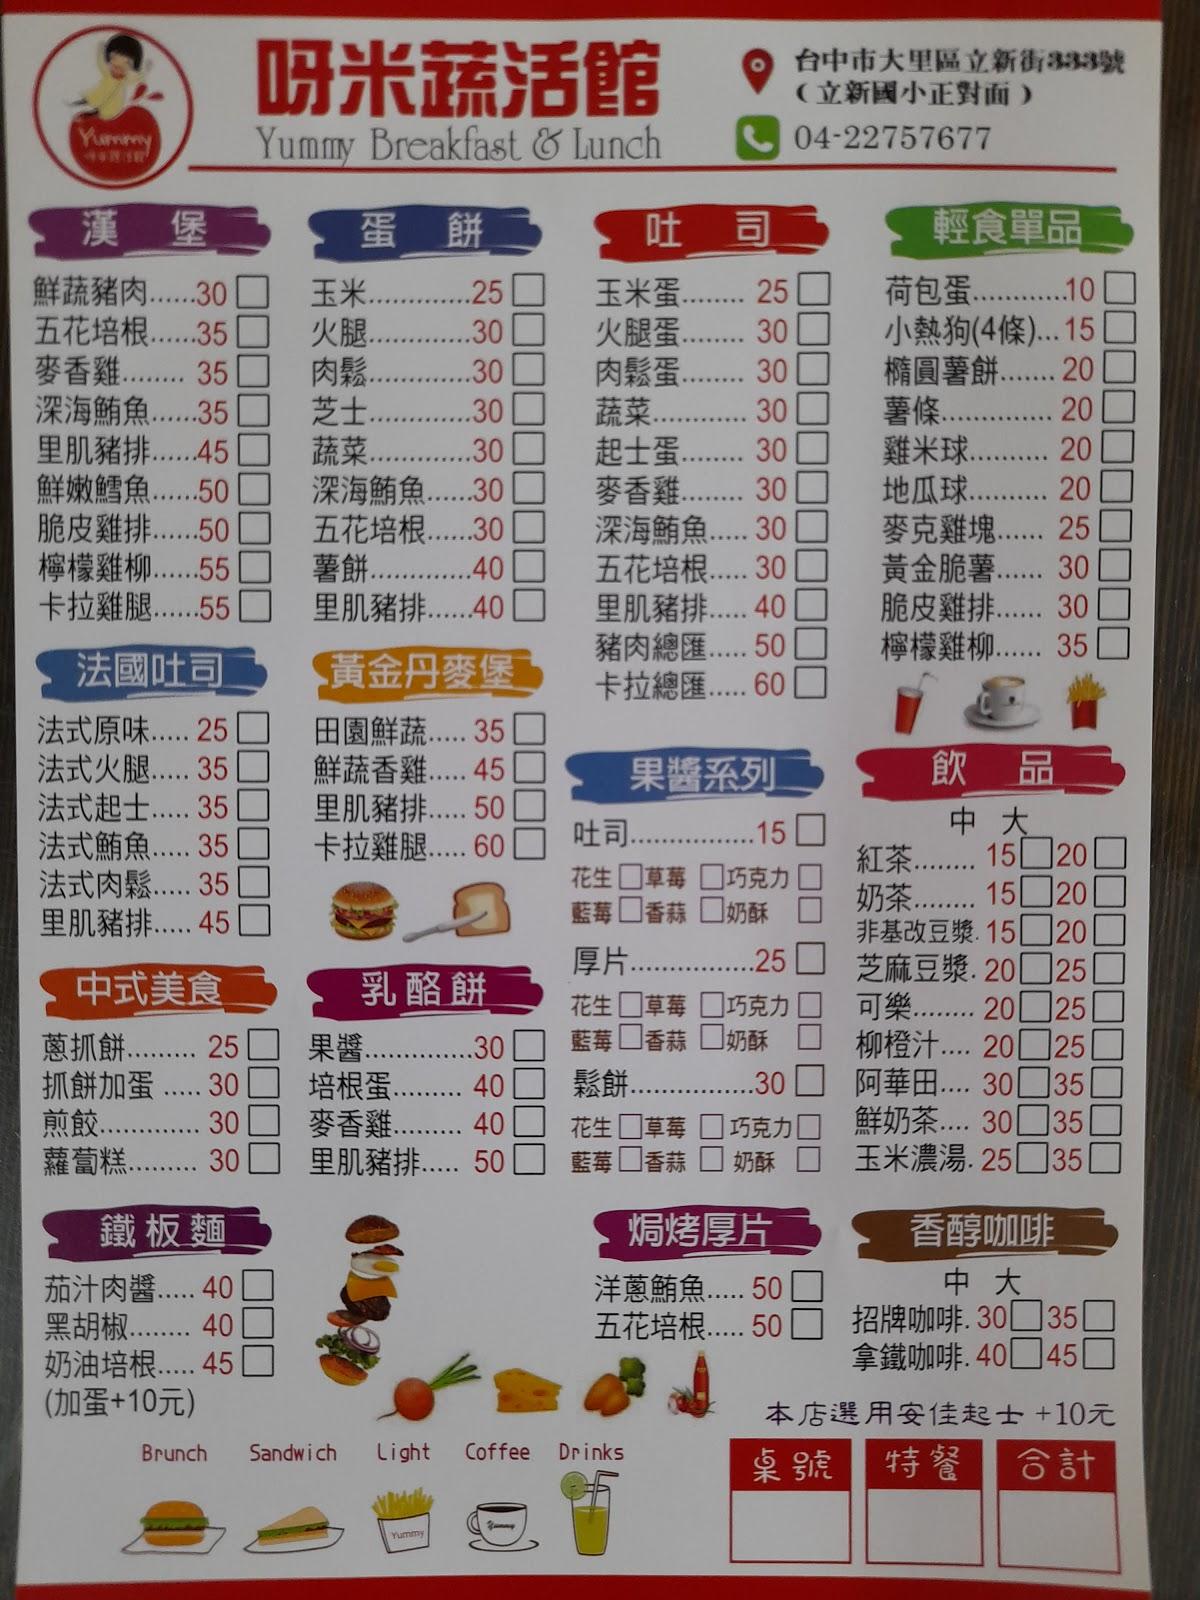 Yummy
呀米蔬活館
呀米蔬活館
Yummy Breakfast & Lunch
台中市大里區立新街333號
(立新國小正對面)
04-22757677
漢 堡
鮮蔬豬肉......30
五花培根......35
麥香雞........ 35
深海鮪魚......35
里肌豬排......45
鮮嫩鱈魚......50
脆皮雞排......50
檸檬雞柳......55
卡拉雞腿......55
蛋 餅
玉米.............25
火腿.............30
肉鬆.............30
芝士.............30
蔬菜.............30
深海鮪魚......30
五花培根......30
薯餅.............40
里肌豬排......40
吐 司
玉米蛋........ 25
火腿蛋........ 30
肉鬆蛋........ 30
蔬菜............ 30
起士蛋........ 30
麥香雞........ 30
深海鮪魚..... 30
五花培根..... 30
里肌豬排..... 40
豬肉總匯..... 50
卡拉總匯..... 60
輕食單品
荷包蛋............10
小熱狗(4條)... 15
橢圓薯餅....... 20
薯條.............. 20
雞米球.......... 20
地瓜球.......... 20
麥克雞塊...... 25
黃金脆薯...... 30
脆皮雞排...... 30
檸檬雞柳...... 35
法國吐司
法式原味..... 25
法式火腿..... 35
法式起士..... 35
法式鮪魚..... 35
法式肉鬆..... 35
里肌豬排..... 45
黃金丹麥堡
田園鮮蔬..... 35
鮮蔬香雞..... 45
里肌豬排..... 50
卡拉雞腿..... 60
果醬系列
吐司................15
花生 草莓 巧克力
藍莓 香蒜 奶酥
厚片................25
花生 草莓 巧克力
藍莓 香蒜 奶酥
鬆餅................30
花生 草莓 巧克力
藍莓 香蒜 奶酥
飲 品
中 大
紅茶........ 15 20
奶茶........ 15 20
非基改豆漿. 15 20
芝麻豆漿. 20 25
可樂........ 20 25
柳橙汁.... 20 25
阿華田.... 30 35
鮮奶茶.... 30 35
玉米濃湯. 25 35
中式美食
蔥抓餅......... 25
抓餅加蛋 ..... 30
煎餃............. 30
蘿蔔糕......... 30
乳酪餅
果醬..............30
培根蛋......... 40
麥香雞......... 40
里肌豬排..... 50
鐵板麵
茄汁肉醬..... 40
黑胡椒........ 40
奶油培根..... 45
(加蛋+10元)
焗烤厚片
洋蔥鮪魚..... 50
五花培根..... 50
香醇咖啡
中 大
招牌咖啡. 30 35
拿鐵咖啡. 40 45
本店選用安佳起士 +10元
Brunch Sandwich Light Coffee Drinks
Yummy Yummy
桌號 特餐 合計